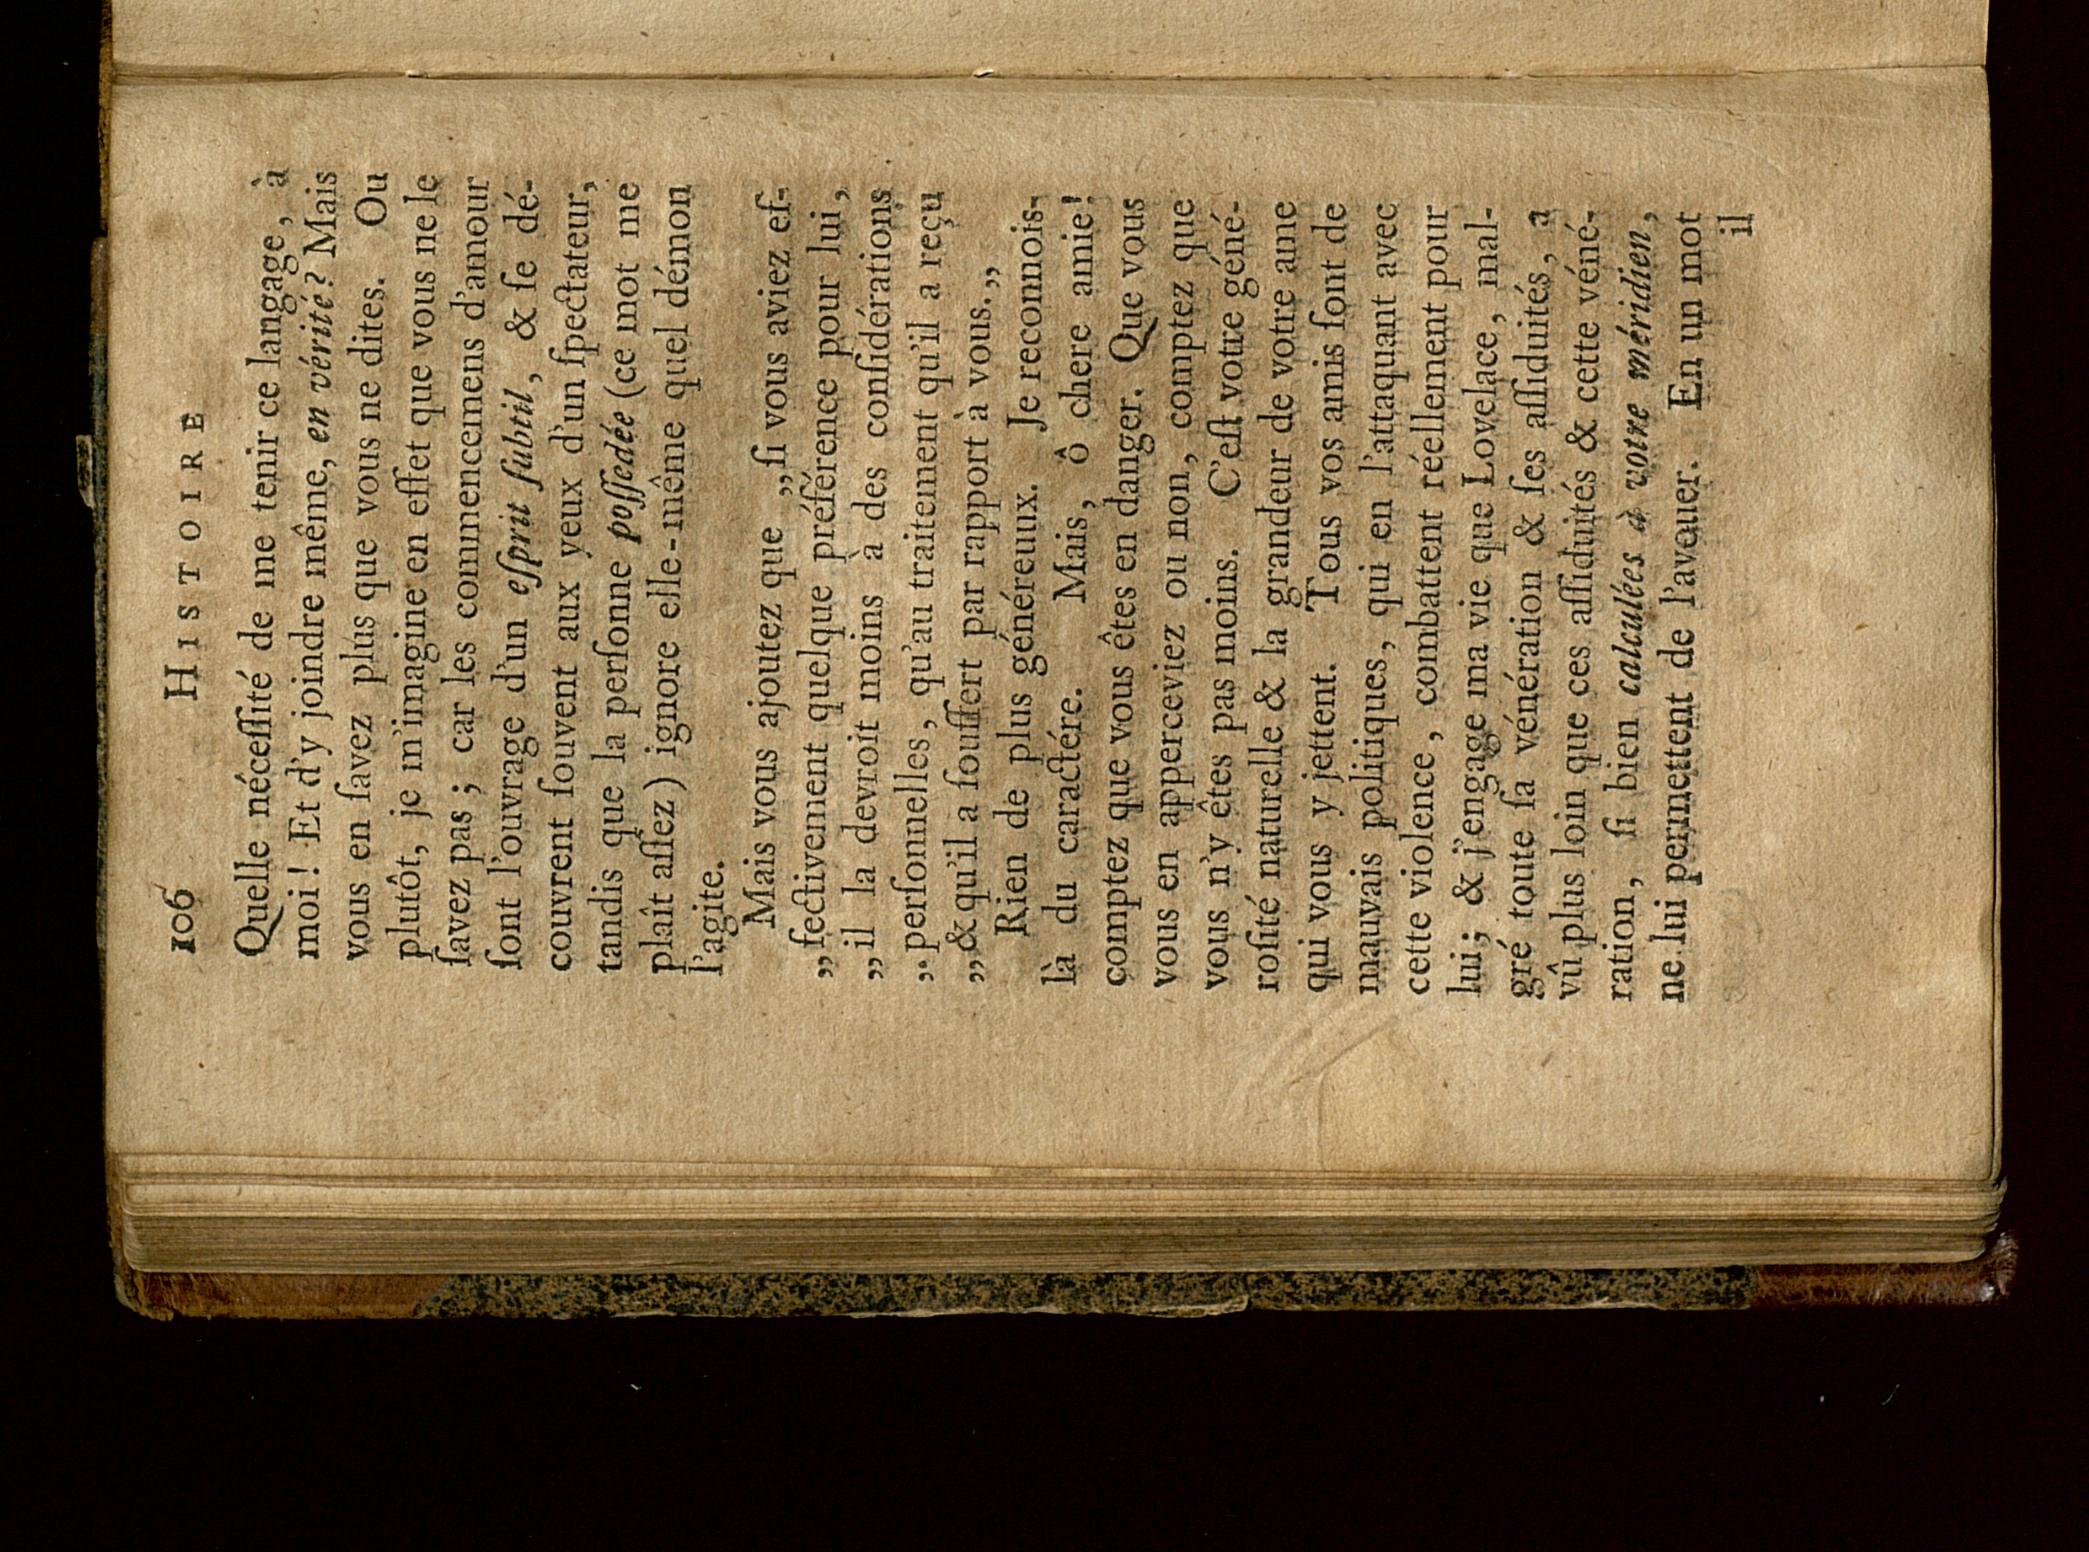 106 HISTOIRE
Quelle néceſſité de me tenir ce langage, à
moi! Et d'y joindre même, en vérité? Mais
vous en ſavez plus que vous ne dites. Ou
plutôt, je m'imagine en effet que vous ne le
ſavez pas; car les commencemens d'amour
ſont l'ouvrage d'un eſprit ſubtil, & ſe dé-
couvrent ſouvent aux yeux d'un ſpectateur,
tandis que la perſonne poſſedée (ce mot me
plaît aſſez) ignore elle-même quel démon
l'agite.
Mais vous ajoutez que „ſi vous aviez ef-
„fectivement quelque préférence pour lui,
„il la devroit moins à des conſidérations
„perſonnelles, qu'au traitement qu'il a reçu
„& qu'il a ſouffert par rapport à vous.„
Rien de plus généreux. Je reconnois-
là du caractére. Mais, ô chere amie!
comptez que vous êtes en danger. Que vous
vous en apperceviez ou non, comptez que
vous n'y êtes pas moins. C'eſt votre géné-
roſité naturelle & la grandeur de votre ame
qui vous y jettent. Tous vos amis ſont de
mauvais politiques, qui en l'attaquant avec
cette violence, combattent réellement pour
lui; & j'engage ma vie que Lovelace, mal-
gré toute ſa vénération & ſes aſſiduités, a
vû plus loin que ces aſſiduités & cette véné-
ration, ſi bien calculées à votre méridien,
ne lui permettent de l'avouer. En un mot
il